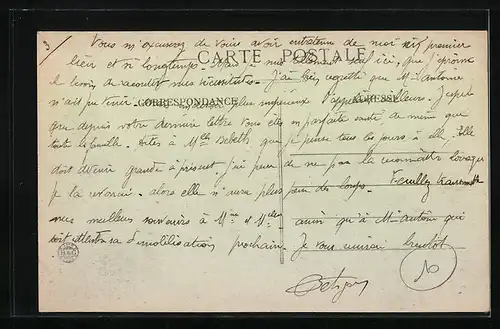 3
Vous m'excuserez de vous avoir entretenu de moi en premier
CARTE POSTALE
lieu et si longtemps. Mais je me sens seul ici, que j'éprouve
le besoin de raconter mes J'ai bien regretté que M. Antoine
n'ait pu venir
CORRESPONDANCE
ADRESSE
d'ailleurs. J'espère
que depuis votre dernière lettre vous êtes en parfaite santé, de même que
toute la famille. Dites à Mlle Babeth que je pense tous les jours à elle, Elle
doit devenir grande à présent, j'ai peur de ne pas la reconnaître lorsque
je la reverrai. alors elle n'aura plus peur des loups. Veuillez transmettre
mes meilleurs souvenirs à Mme & Mlles ainsi qu'à M. Antoine qui
doit attendre sa démobilisation prochaine. Je vous bientôt
H&G
10